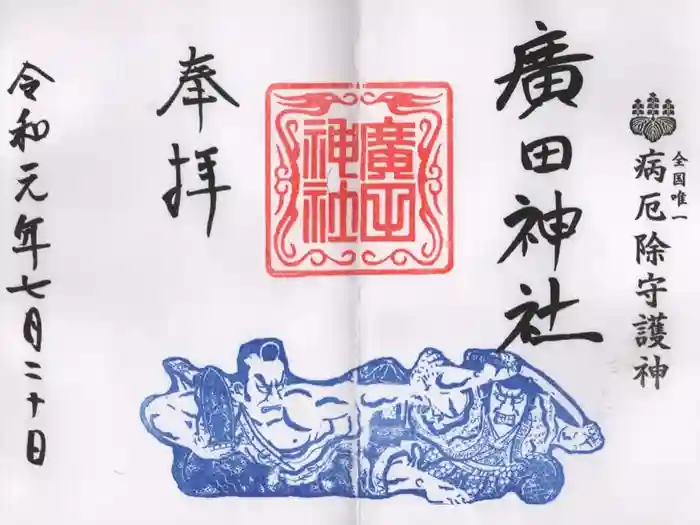 全国唯一
病厄除守護神
廣田神社
廣田
神社
奉拝
令和元年七月二十日